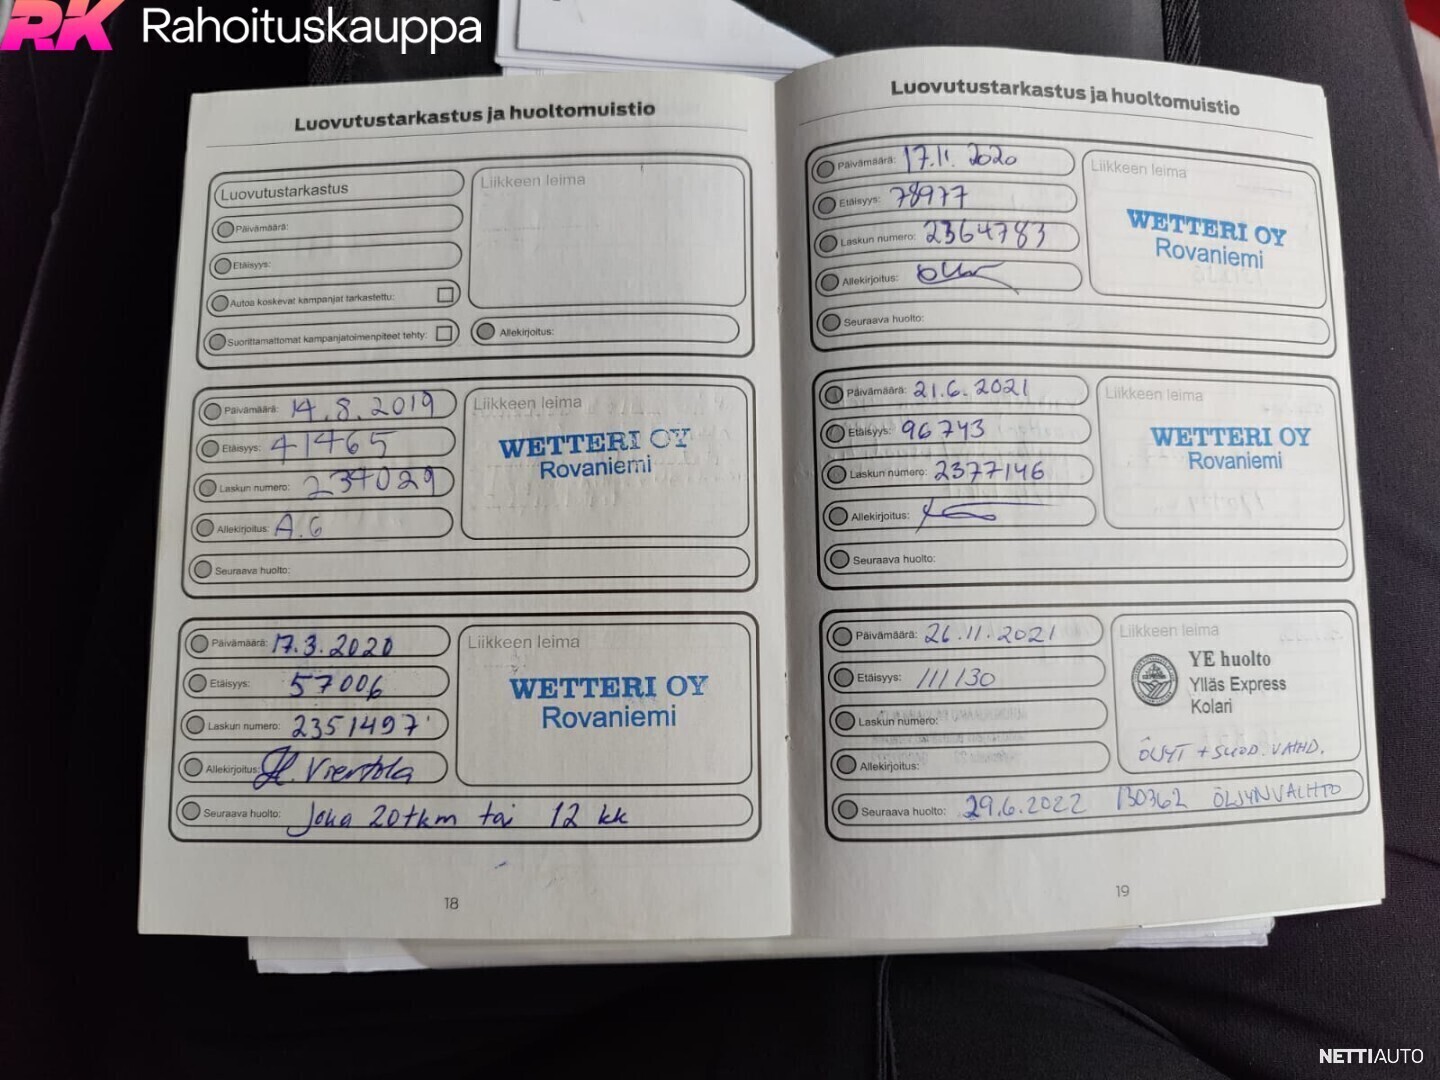 RK Rahoituskauppa
Luovutustarkastus ja huoltomuistio
Luovutustarkastus
Liikkeen leima
Päivämäärä:
Etäisyys:
Autoa koskevat kampanjat tarkastettu:
Suorittamattomat kampanjatoimenpiteet tehty:
Allekirjoitus:
Päivämäärä: 14.8.2019
Etäisyys: 41465
Laskun numero: 237029
Allekirjoitus: A.G
Liikkeen leima
WETTERI OY
Rovaniemi
Seuraava huolto:
Päivämäärä: 17.3.2020
Etäisyys: 57006
Laskun numero: 2351497
Allekirjoitus: H. Viertola
Liikkeen leima
WETTERI OY
Rovaniemi
Seuraava huolto: Joka 20tkm tai 12 kk
18
Luovutustarkastus ja huoltomuistio
Päivämäärä: 17.11.2020
Etäisyys: 78977
Laskun numero: 2364783
Allekirjoitus:
Liikkeen leima
WETTERI OY
Rovaniemi
Seuraava huolto:
Päivämäärä: 21.6.2021
Etäisyys: 96743
Laskun numero: 2377146
Allekirjoitus:
Liikkeen leima
WETTERI OY
Rovaniemi
Seuraava huolto:
Päivämäärä: 26.11.2021
Etäisyys: 111130
Laskun numero:
Allekirjoitus:
Liikkeen leima
YE huolto
Ylläs Express
Kolari
ÖLJYT + SUOD. VAIHD.
Seuraava huolto: 29.6.2022 130362 ÖLJYNVAIHTO
19
NETTIAUTO